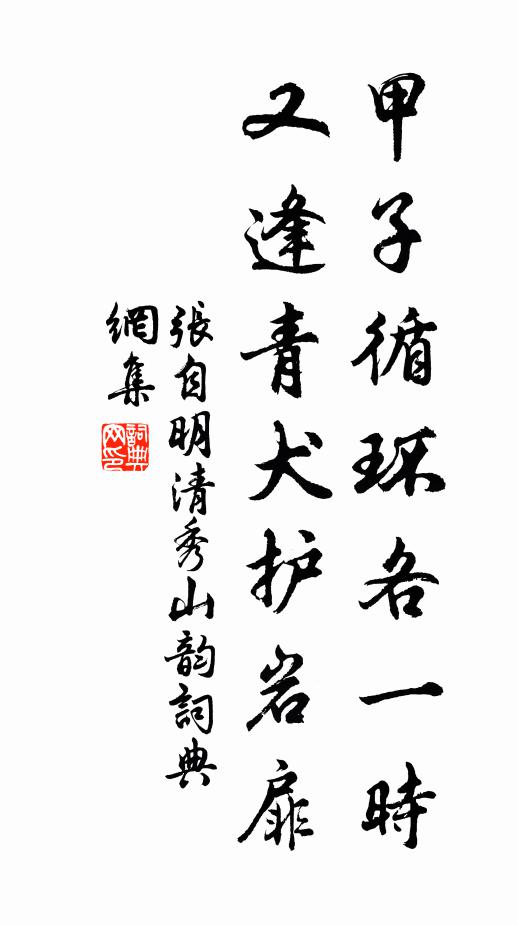 甲子循环各一時
又逢青犬护岩扉
張自明清秀山韵詞典
網集
詞典網印